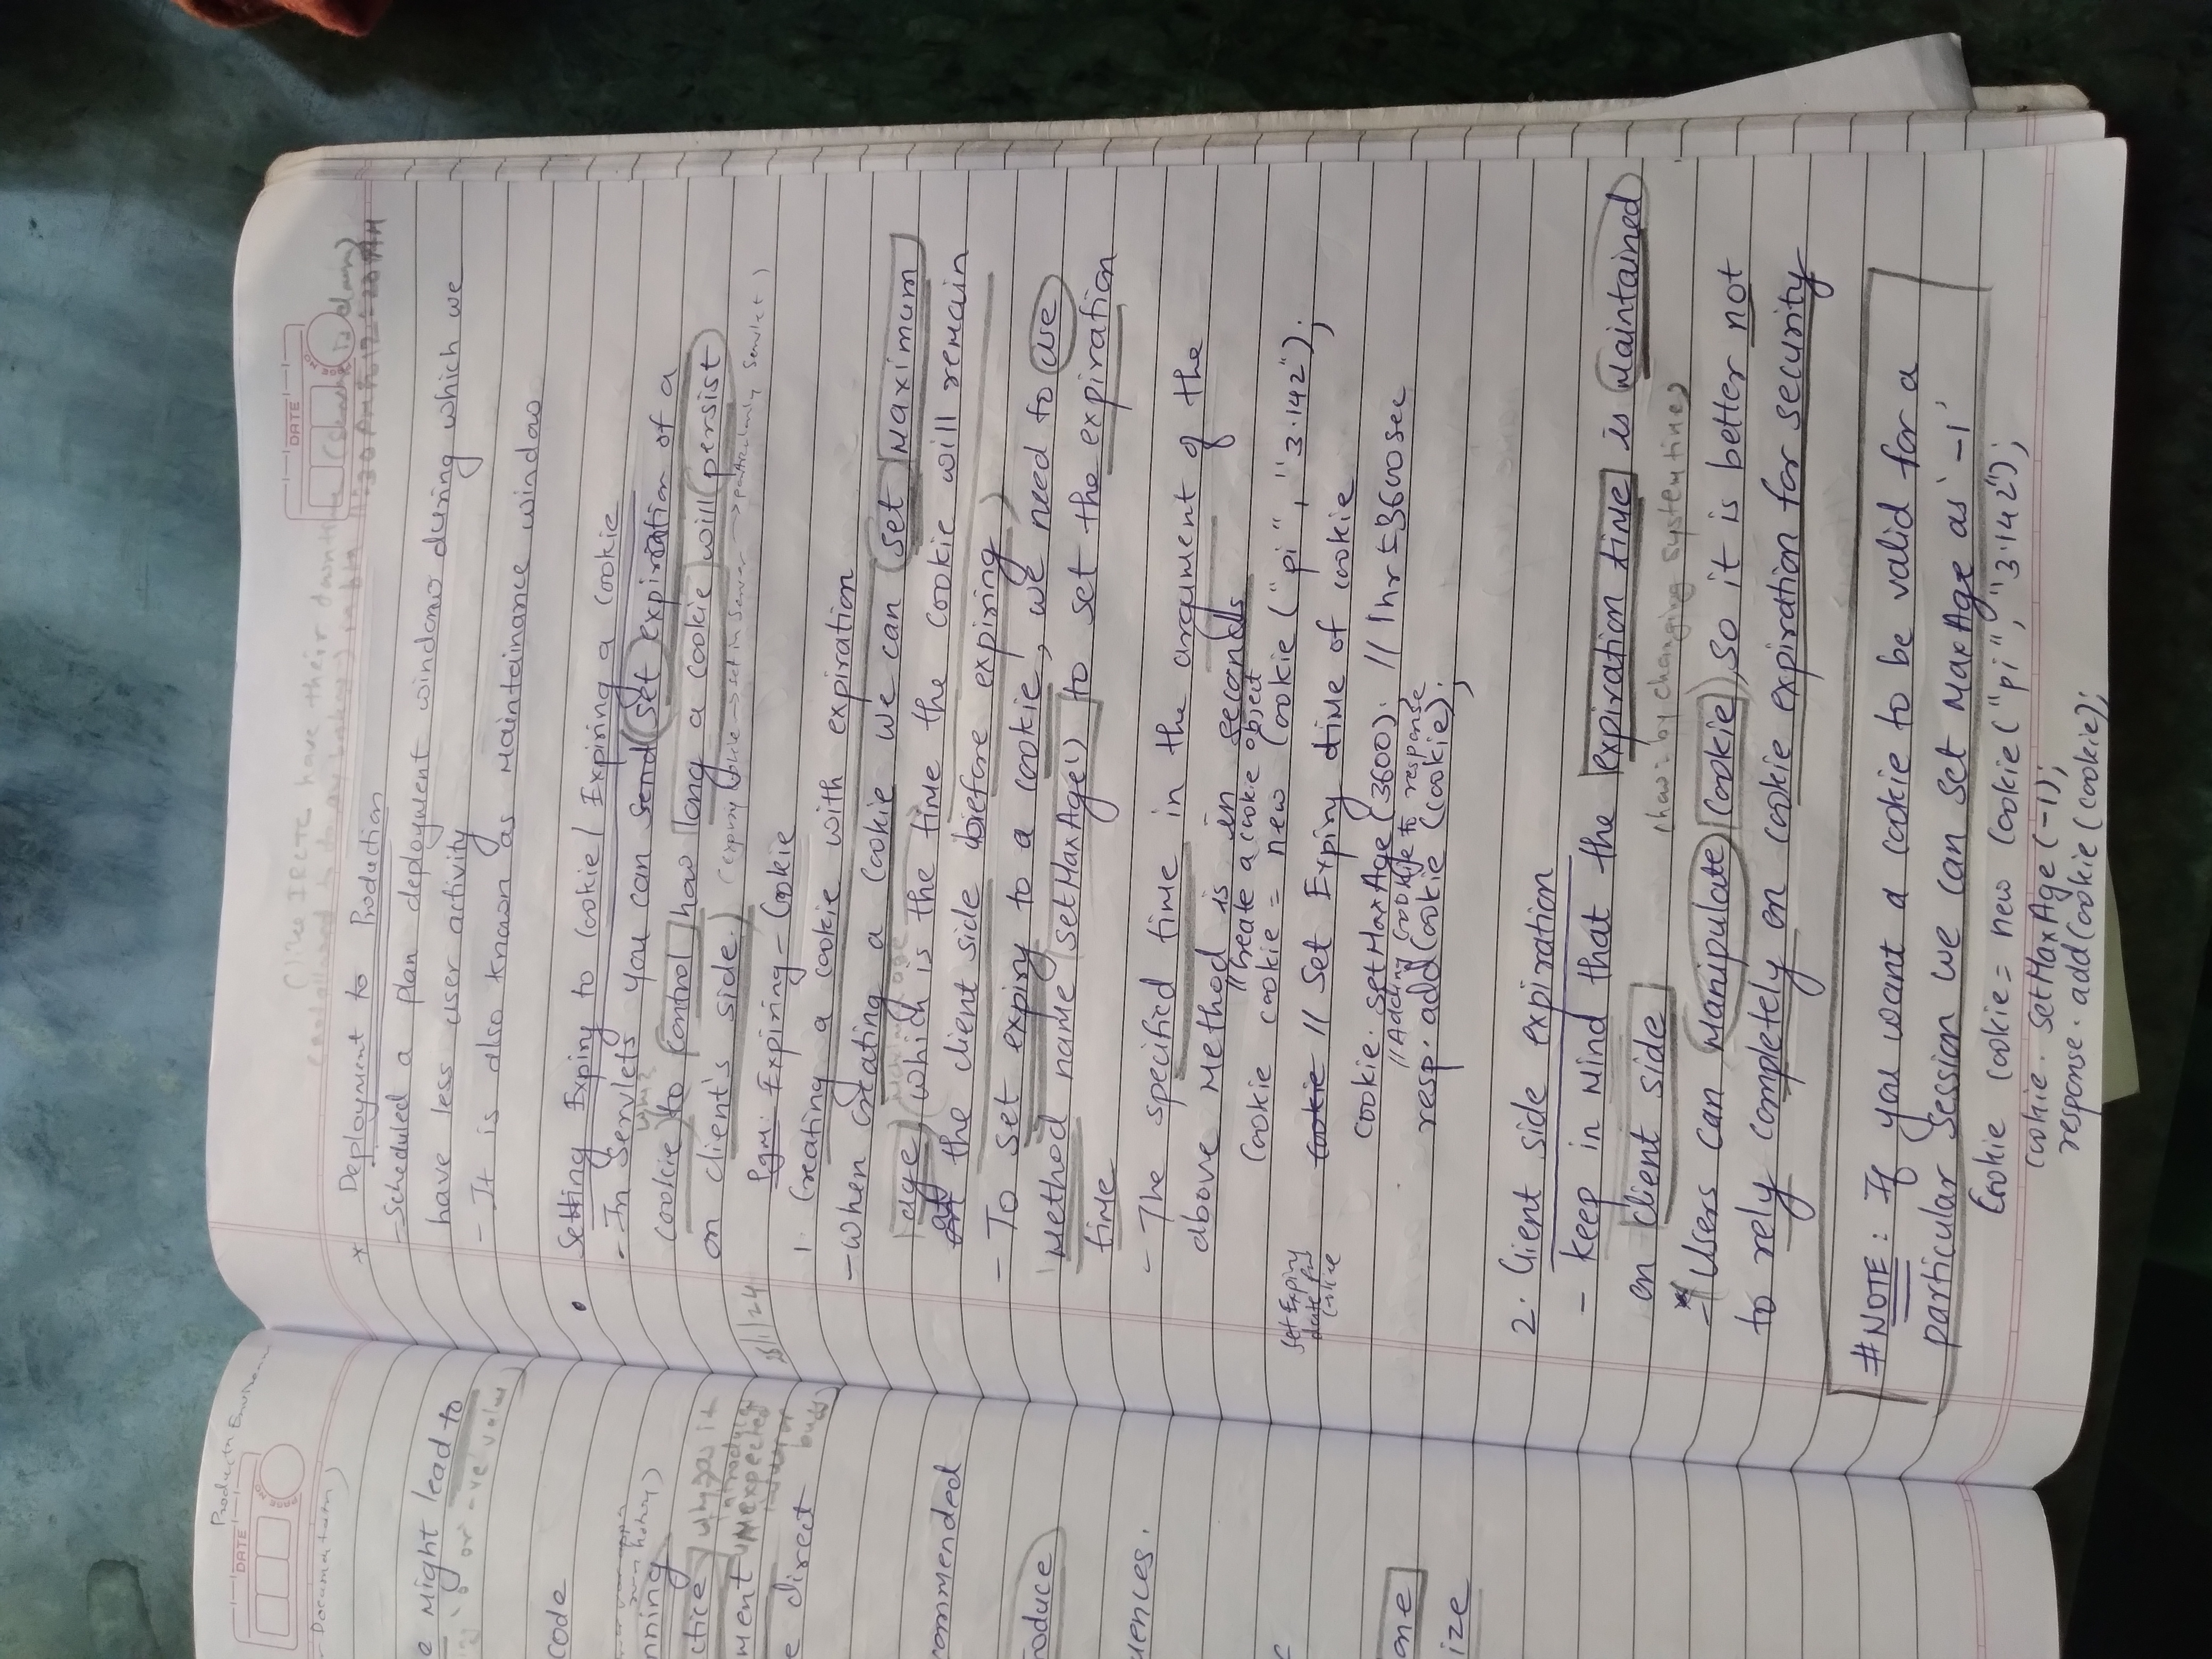 Productn Environm
DATE
PAGE NO
Documentatn)
e might lead to
or -ve value)
code
nning
ctice
ment unexpected
e direct bugs)
commended
roduce
uences.
c
one
ize
DATE
PAGE NO
(like IRCTC have their downtime (Search is down)
* Deployment to Production
- Scheduled a plan deployment window during which we
have less user activity
- It is also known as Maintainance window
• Setting Expiry to Cookie / Expiring a Cookie
- In Servlets you can send (set expiration of a
cookie) to control how long a cookie will persist
on client's side.) (expiry cookie → set in server → particularly Servlet)
25/1/24
Pgm: Expiring - Cookie
1. Creating a cookie with expiration
- When creating a cookie we can set Maximum
age, which is the time the cookie will remain
at the client side before expiring)
- To set expiry to a cookie, we need to use
Method name setMaxAge() to set the expiration
time
- The specified time in the argument of the
above method is in seconds
//Create a cookie object
Cookie cookie = new Cookie ("pi", "3.142");
set Expiry
date for
cookie
cookie // Set Expiry time of cookie
cookie. setMaxAge (3600); // 1hr = 3600sec
//Adding cookie to response
resp. addCookie (cookie);
2. Client side expiration
- keep in mind that the expiration time is maintained
on client side
(how: by changing system time)
- Users can manipulate cookie), so it is better not
to rely completely on cookie expiration for security
#NOTE: If you want a cookie to be valid for a
particular session we can set MaxAge as '-1'
Cookie cookie = new Cookie ("pi", "3.142");
cookie. setMaxAge (-1);
response. addCookie (cookie);